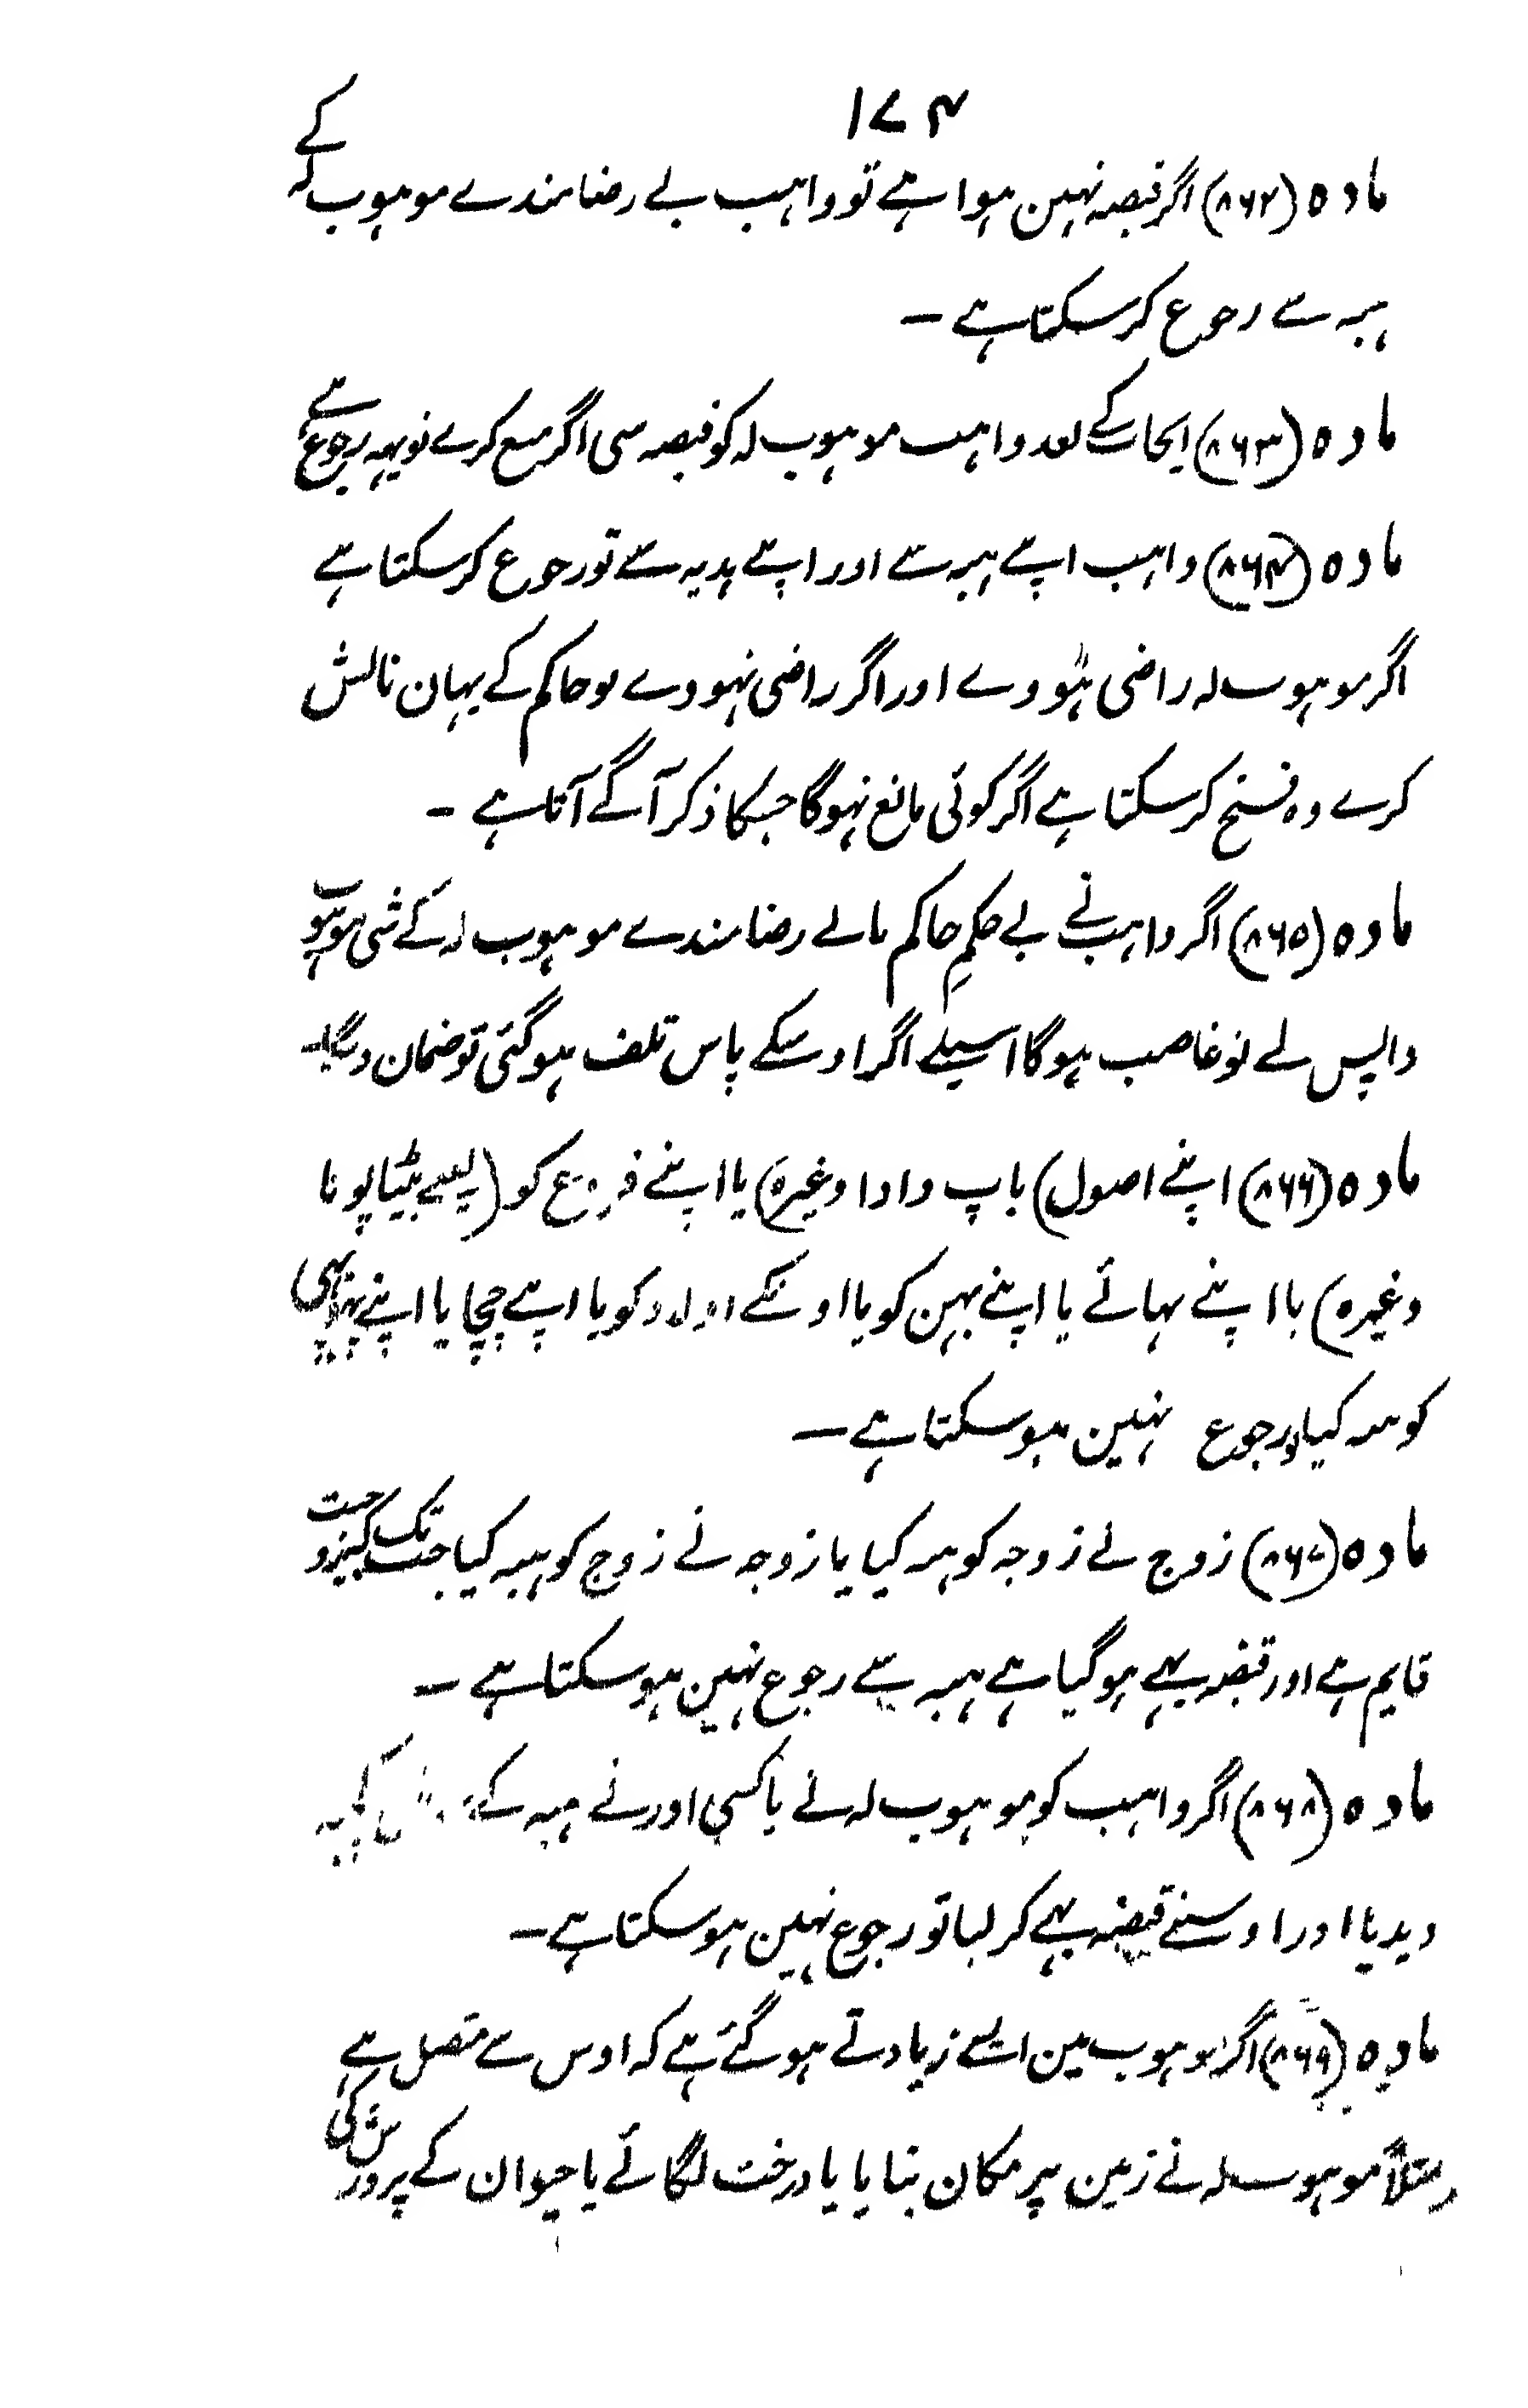 ۱۷۴
مادہ (۸۶۲) اگر قبضہ نہین ہوا ہے تو واہب بے رضامندے موہوب لہ کے
ہبہ سے رجوع کرسکتا ہے ـ
مادہ (۸۶۳) ایجاب کے بعد واہب موہوب لہ کو قبضہ سی اگر منع کرے تو یہہ رجوع ہے
مادہ (۸۶۴) واہب اپنے ہبہ سے اور اپنے ہدیہ سے تو رجوع کرسکتا ہے
اگر موہوب لہ راضی ہووے اور اگر راضی نہووے تو حاکم کے یہان نالش
کرے وہ فسخ کرسکتا ہے اگر کوئی مانع نہوگا جسکا ذکر آگے آتا ہے ـ
مادہ (۸۶۵) اگر واہب نے بے حکمِ حاکم یا بے رضامندے موہوب لہ کے شی موہوب
واپس لے تو غاصب ہوگا اسیلے اگر اوسکے پاس تلف ہوگئی تو ضمان دیگا ـ
مادہ (۸۶۶) اپنے اصول) باپ دادا وغیرہ) یا اپنے فروع کو (یعنے بیٹا پوتا
وغیرہ) یا اپنے بہائے یا اپنے بہن کو یا اونکے اولاد کو یا اپنے چچا یا اپنے
کو ہبہ کیا تو رجوع نہین ہوسکتا ہے ـ
مادہ (۸۶۷) زوج نے زوجہ کو ہبہ کیا یا زوجہ نے زوج کو ہبہ کیا جب تک زوجیت
قایم ہے اور قبضہ بہے ہوگیا ہے ہبہ سے رجوع نہین ہوسکتا ہے ـ
مادہ (۸۶۸) اگر واہب کو موہوب لہ نے یا کسی اور نے ہبہ کے
دیدیا اور اوسنے قبضہ بہے کر لیا تو رجوع نہین ہوسکتا ہے ـ
مادہ (۸۶۹) اگر موہوب مین ایسے زیادتے ہوگئے ہے کہ اوس سے متصل ہے
مثلاً موہوب لہ نے زمین پر مکان بنایا یا درخت لگائے یا حیوان کے پرورش کی